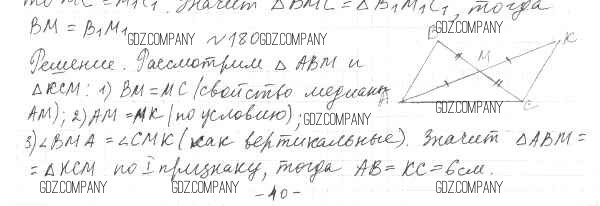 то MC = M₁C₁. Значит △BMC = △B₁M₁C₁, тогда
BM = B₁M₁
GDZ.COMPANY
№180
GDZ.COMPANY
Решение. Рассмотрим △ ABM и
△KCM: 1) BM = MC (свойство медианы
AM); 2) AM = MK (по условию);
GDZ.COMPANY
3) ∠BMA = ∠CMK (как вертикальные). Значит △ABM =
= △KCM по I признаку, тогда AB = KC = 6см.
B
K
M
A
C
GDZ.COMPANY
GDZ.COMPANY
GDZ.COMPANY
GDZ.COMPANY
GDZ.COMPANY
-40-